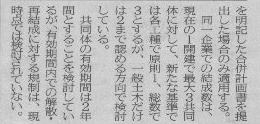 を明記した合併計画書を提
出した場合のみ適用する。
同一企業での結成数は、
現在の１開建で最大３共同
体に対して、新たな基準で
は各工種で原則１、総数で
３とするが、一般土木だけ
は２まで認める方向で検討
している。
共同体の有効期間は２年
間とすることを検討してい
るが、有効期間内での解散・
再結成に対する規制は、現
時点では検討されていない。